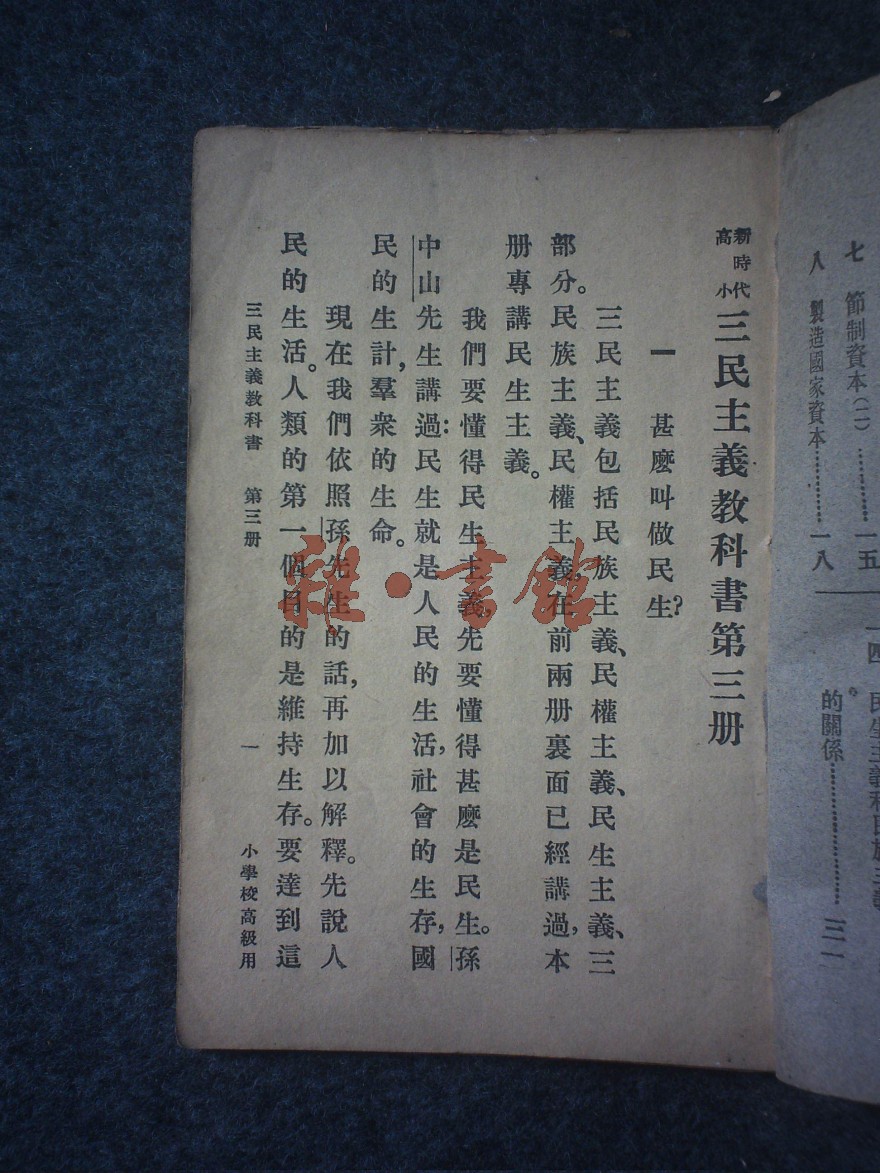 新時代
高小
三民主義教科書第三册
一 甚麼叫做民生?
三民主義包括民族主義、民權主義、民生主義、三
部分。民族主義、民權主義,在前兩册裏面已經講過,本
册專講民生主義。
我們要懂得民生主義,先要懂得甚麼是民生。孫
中山先生講過:民生就是人民的生活,社會的生存,國
民的生計,羣衆的生命。
現在我們依照孫先生的話,再加以解釋。先說人
民的生活。人類的第一個目的是維持生存。要達到這
三民主義教科書 第三册 一 小學校高級用
七 節制資本(二)……一五
八 製造國家資本……一八
一四 民生主義和民族主義
的關係……三一
雜·書館